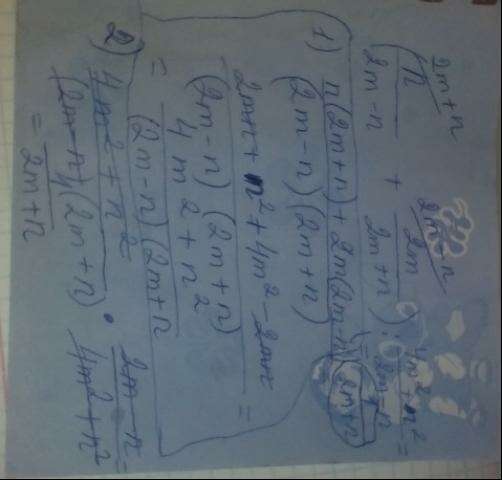 (n/(2m-n) + 2m/(2m+n)) : (4m²+n²)/(2m-n) =
1) (n(2m+n) + 2m(2m-n))/((2m-n)(2m+n)) =
= (2mn + n² + 4m² - 2mn)/((2m-n)(2m+n)) =
= (4m²+n²)/((2m-n)(2m+n))
2) (4m²+n²)/((2m-n)(2m+n)) · (2m-n)/(4m²+n²) =
= /(2m+n)